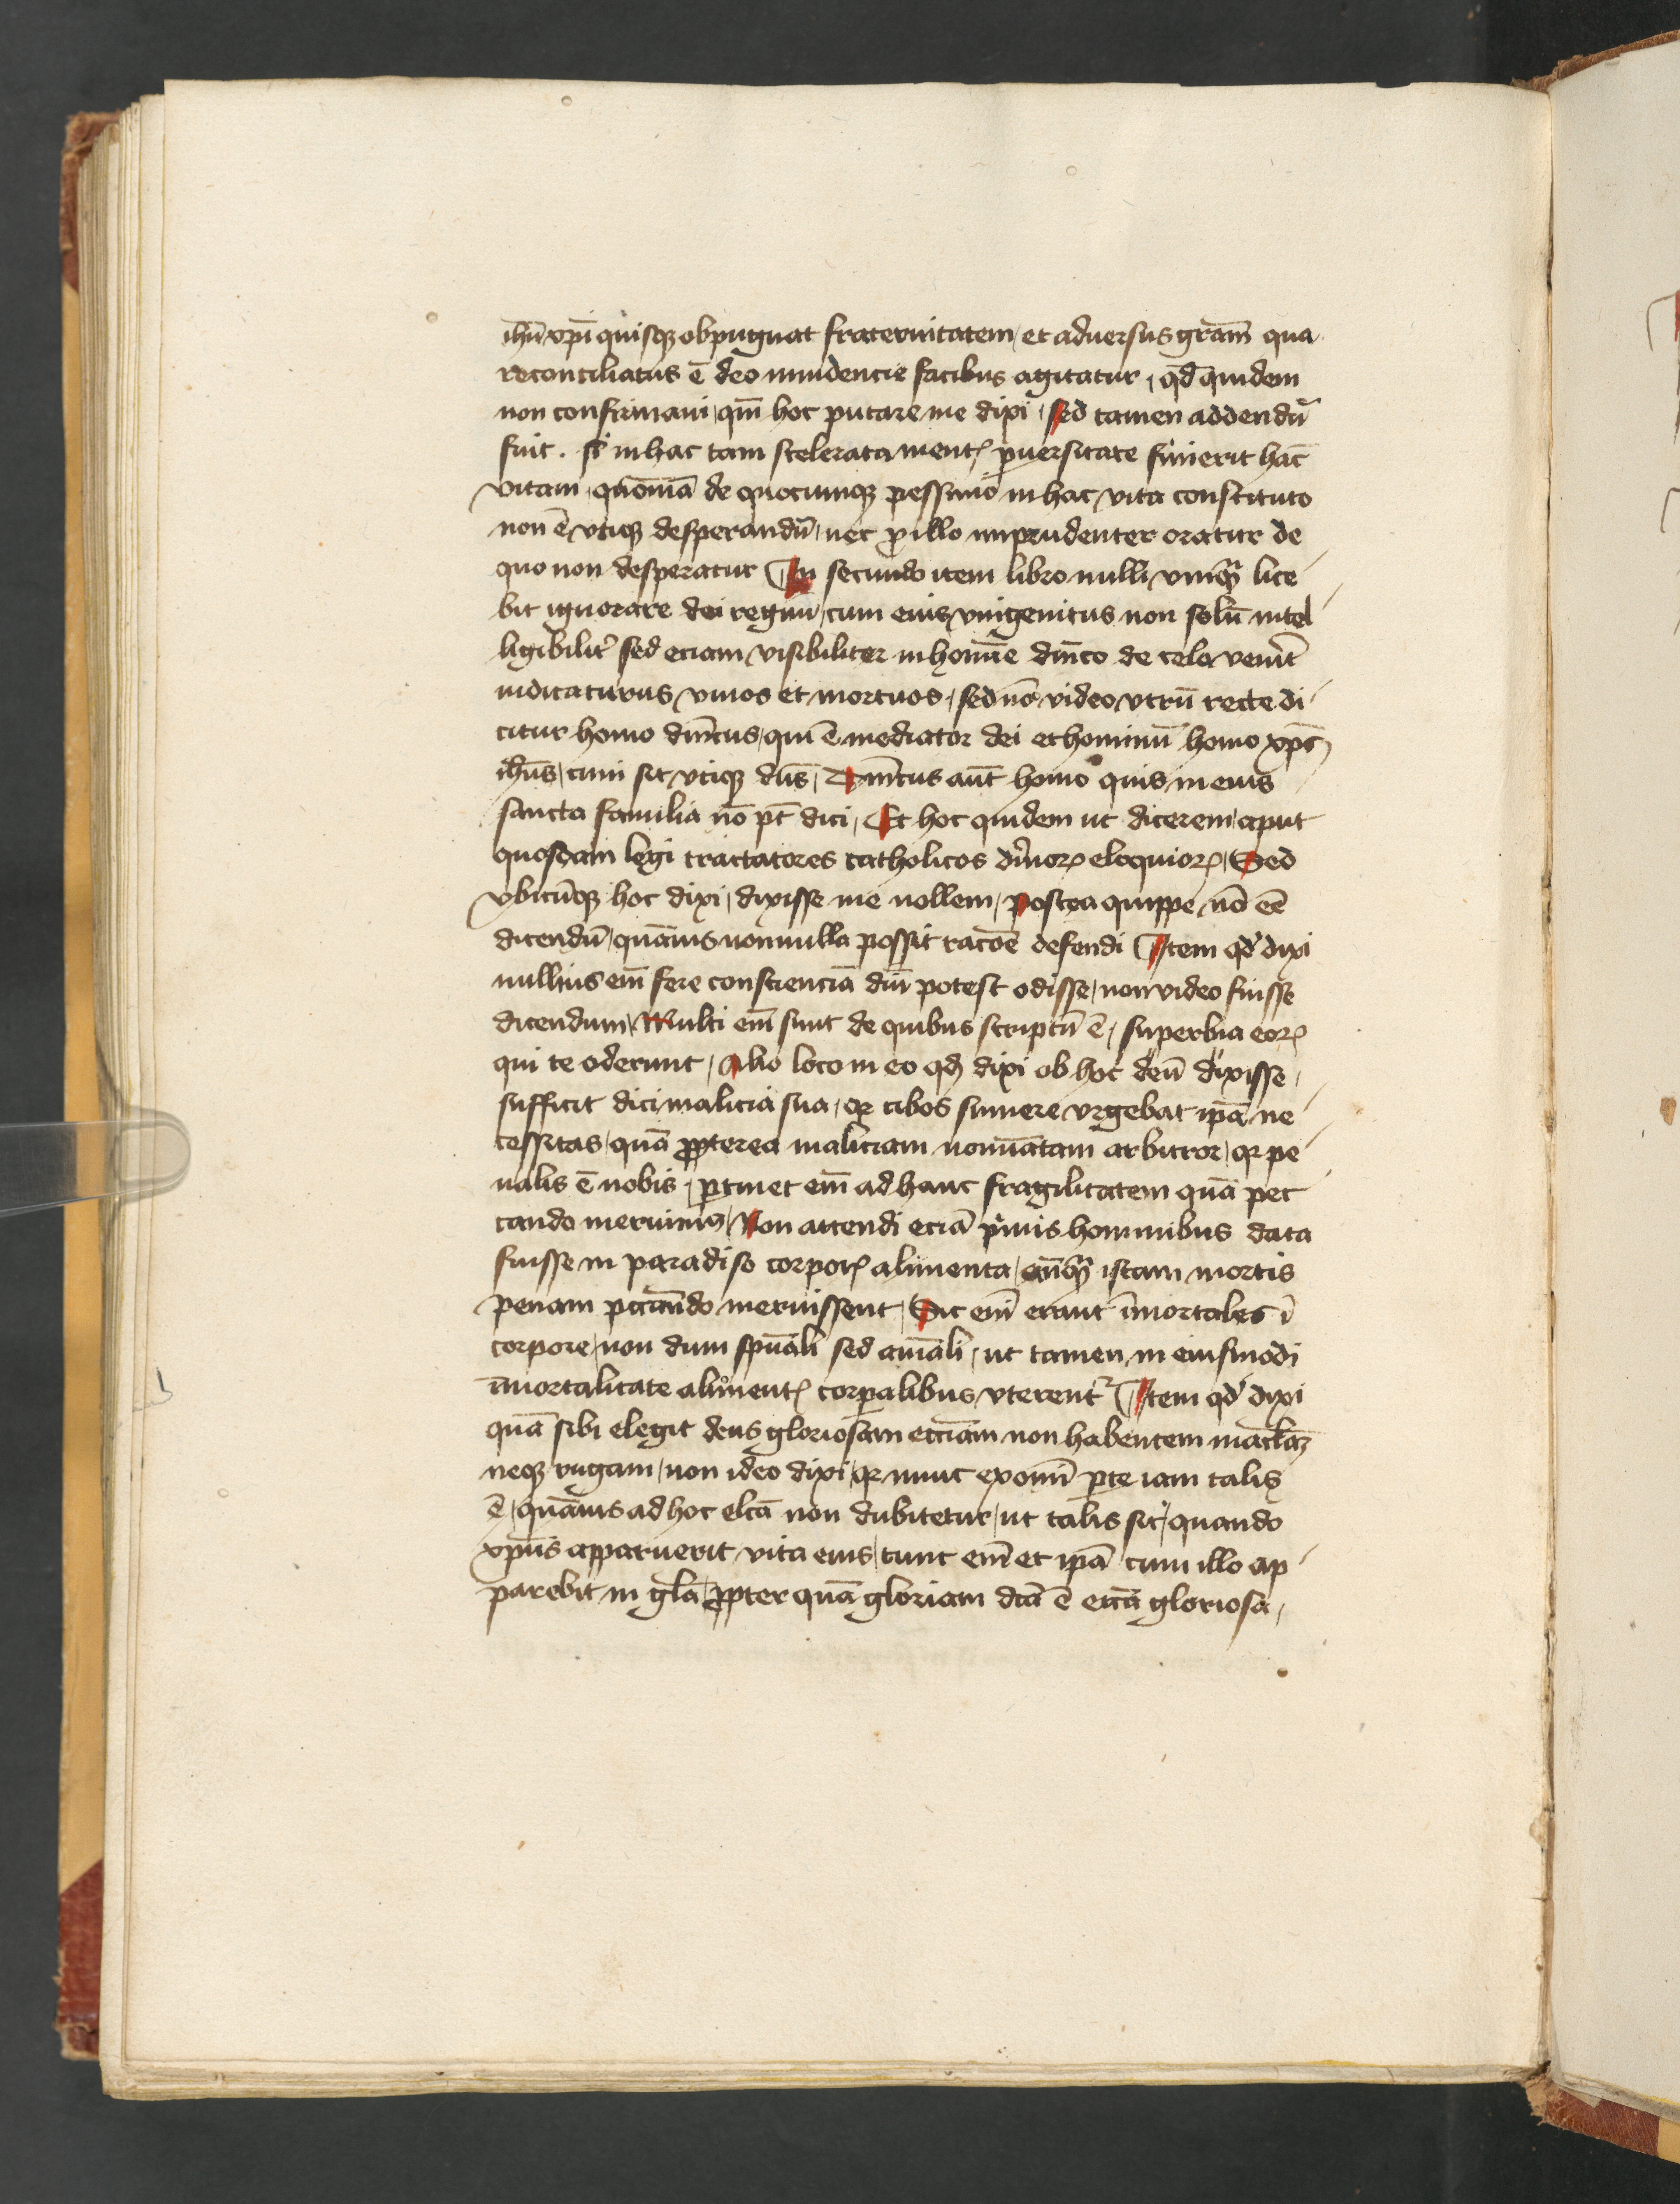 ihū xpī quisqꝫ obpugnat fraternitatem / et aduersus grām̄ qua
reconciliatus ē deo inuidencie facibus agitatur / qd̄ quidem
non confirmaui / qm̄ hoc putare me dixi / sed tamen addendū
fuit . si in hac tam scelerata mentꝭ ꝑuersitate finierit hāc
vitam / quōniā de quocumqꝫ pessimo in hac vita constituto
non ē vtiqꝫ desperandū / nec ꝓ illo imprudenter oratur de
quo non desperatur ¶ In secundo item libro nulli vmqꝫ lice
bit ignorare dei regnū / cum eius vnigenitus non solū intel
ligibilit͛ sed eciam visibiliter in homīe dn̄ico de celo venīt
iudicaturus viuos et mortuos / sed nō video vtrū recte di
citur homo dn̄icus / qui ē mediator dei et hominū homo xpc̄
ihūs / cum sit vtiqꝫ dn̄s / Dn̄icus aūt homo quis in eius
sancta familia nō pt̄ dici / Et hoc quidem ut dicerem / aput
quosdam legi tractatores catholicos diuinoꝝ eloquioꝝ / Sed
vbicūqꝫ hoc dixi / dixisse me nollem / postea quippe nō eē
dicendū / quāuis nonnulla possit racōe defendi ¶ Item qd̓ dixi
nullius em̄ fere conscienciā dm̄ potest odisse / non video fuisse
dicendum / Multi em̄ sunt de quibus scriptū ē / superbia eoꝝ
qui te oderunt / Alio loco in eo qd̓ dixi ob hoc deū dixisse /
sufficit diei malicia sua / qꝛ cibos sumere vrgebat ipā ne
cessitas / quā ꝓpterea maliciam nomīatam arbitror / qꝛ pe
nalis ē nobis / ꝑtinet em̄ ad hanc fragilitatem quā pec
cando meruimꝰ / Non attendi eciā p͛mis hominibus data
fuisse in paradiso corporꝭ alimenta / anteqꝫ istam mortis
penam peccando meruissent / Sic em̄ erant īmortales ī
corpore / non dum spūali sed aīali / ut tamen in eiusmodi
īmortalitate alimentꝭ corꝑalibus vterent᷑ ¶ Item qd̓ dixi
quā sibi elegit deus gloriosam ecc̄iam non habentem maclāꝫ
neqꝫ rugam / non ideo dixi / qꝛ nunc ex omī ꝑte iam talis
ē / quāuis ad hoc elc̄ā non dubitetur / ut talis sit / quando
xpūs apparuerit vita eius / tunc em̄ et ipā cum illo ap
parebit in gl̄a / ꝓpter quā gloriam dc̄ā ē ecc̄ā gloriosa /